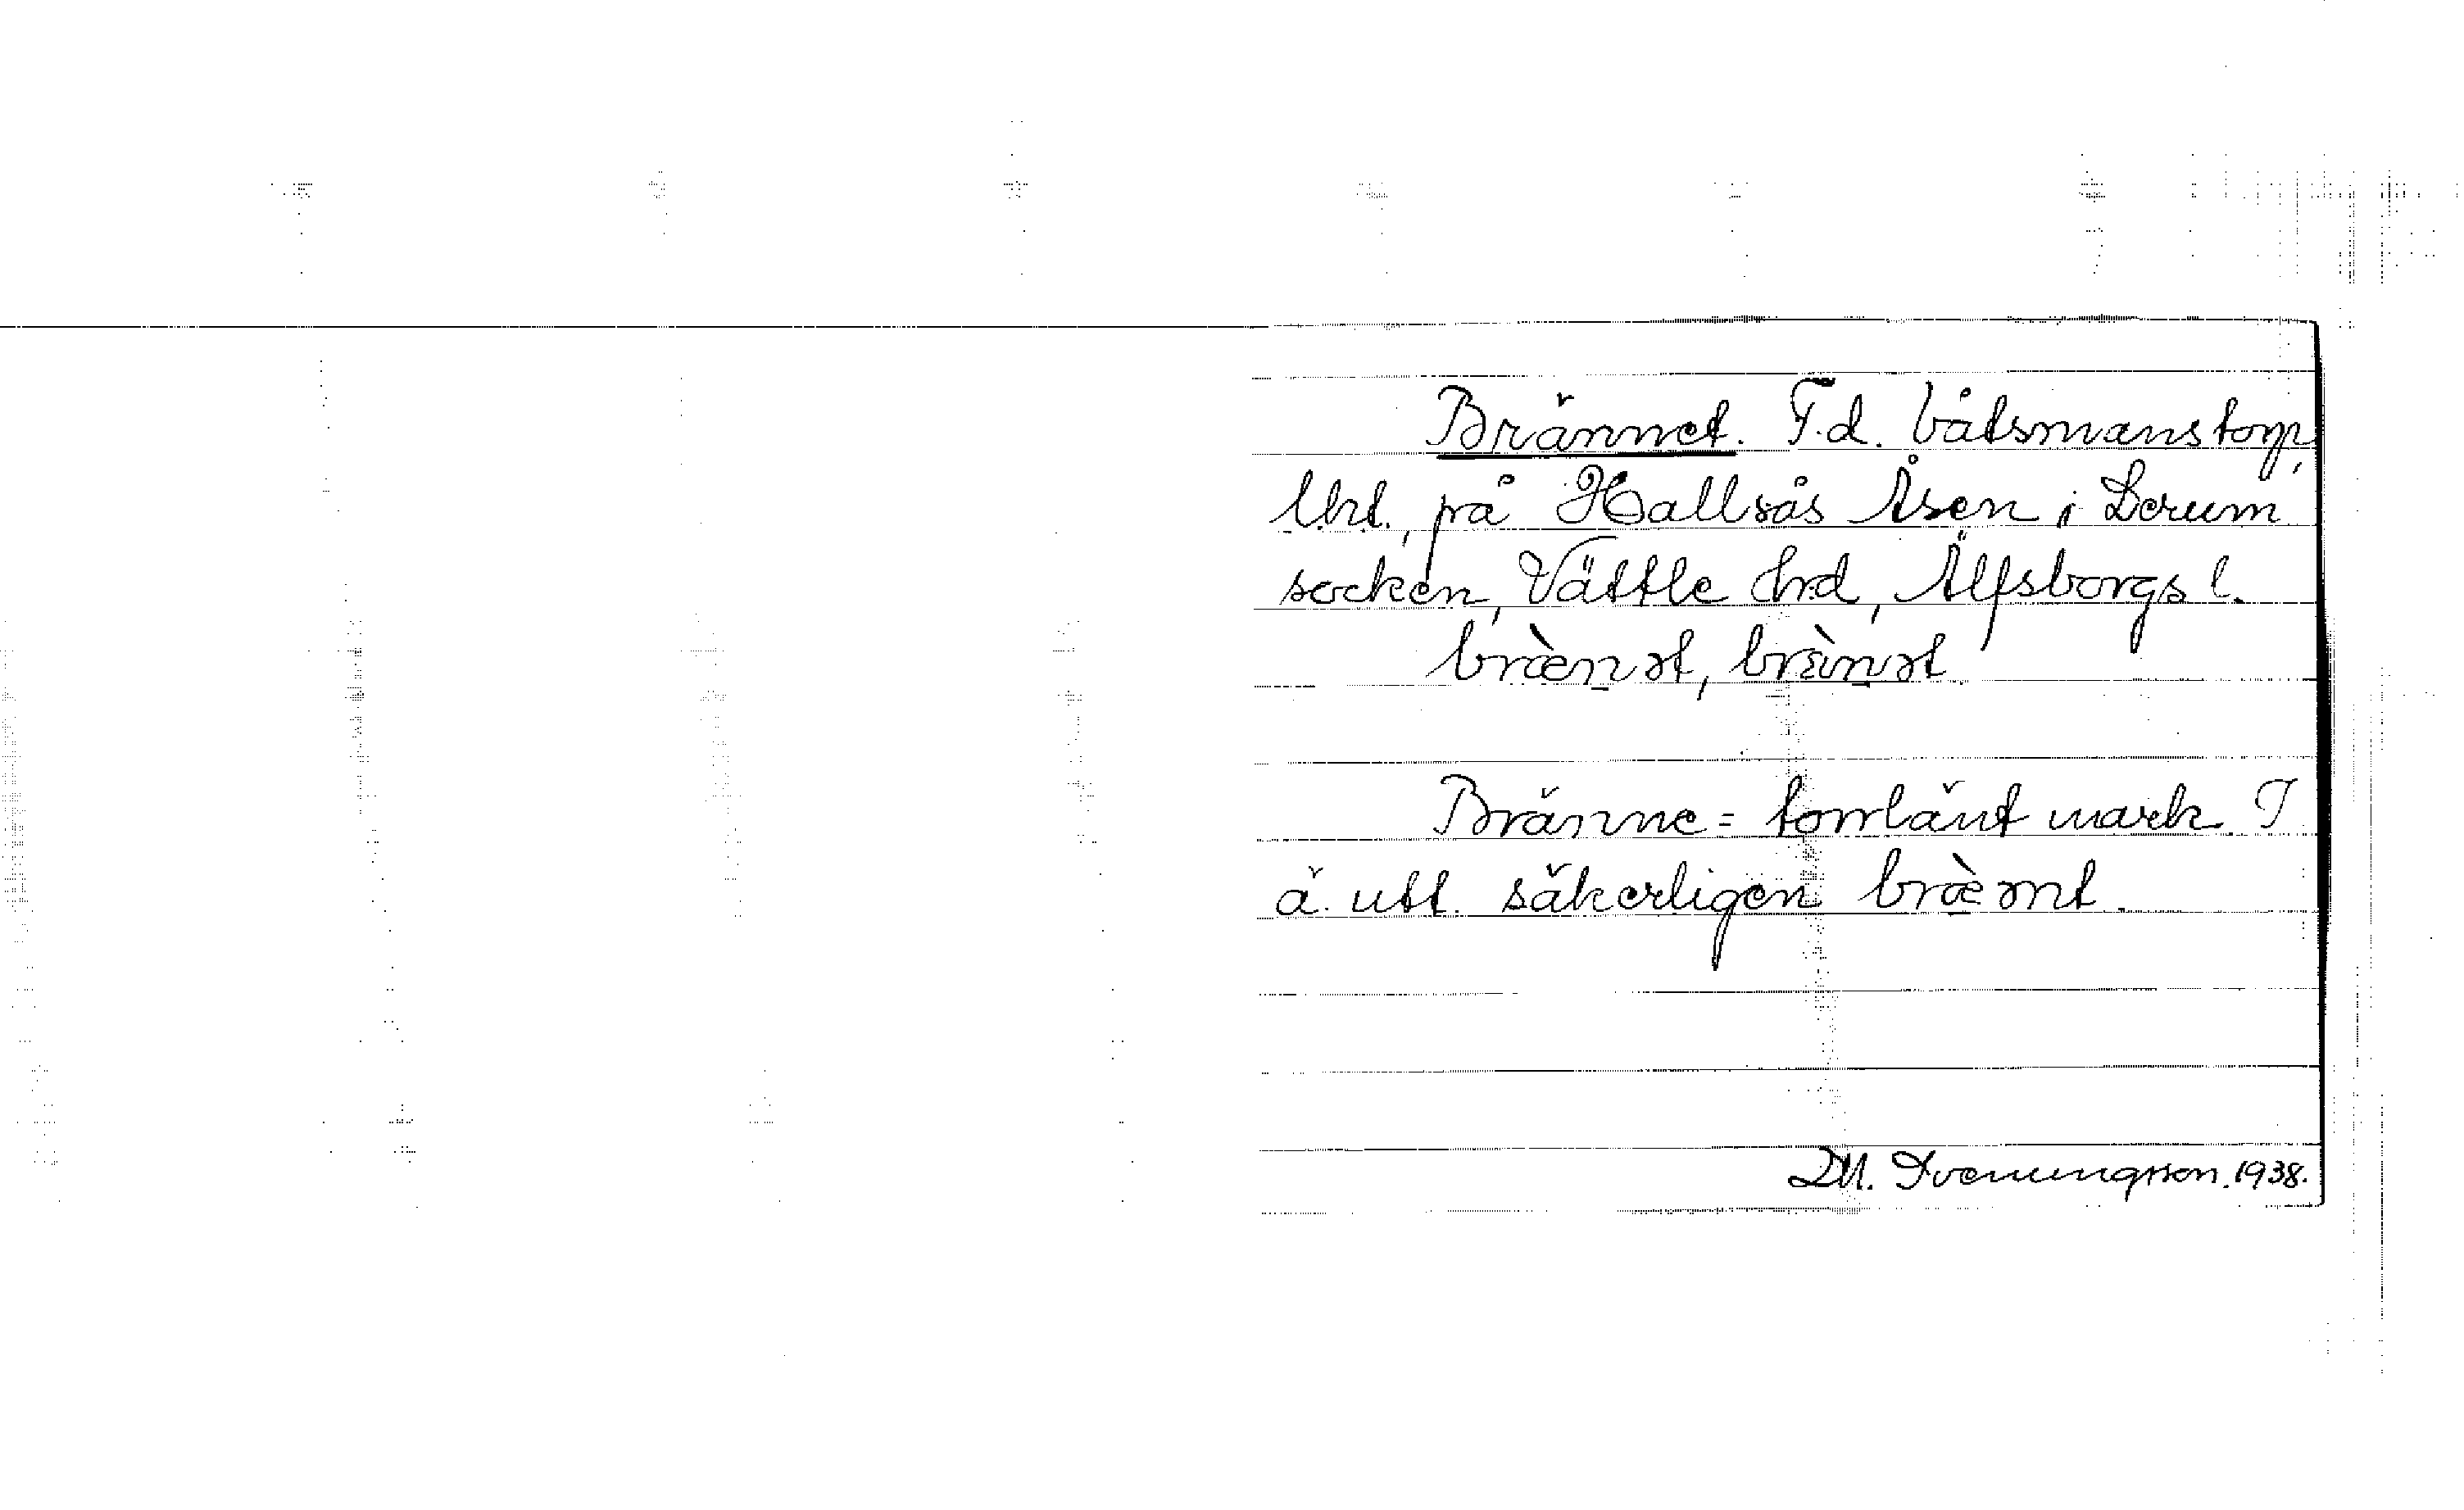 Brännet. F.d. båtsmanstorp,
Uht., på Hallsås Åsen i Lerum
socken, Vättle hrd, Älfsborgs l.
bræ̀nət, brànət.
Bränne = torrlänt mark. I
ä. utt. säkerligen bræ̀ənt.
D.M. Svenungsson. 1938.